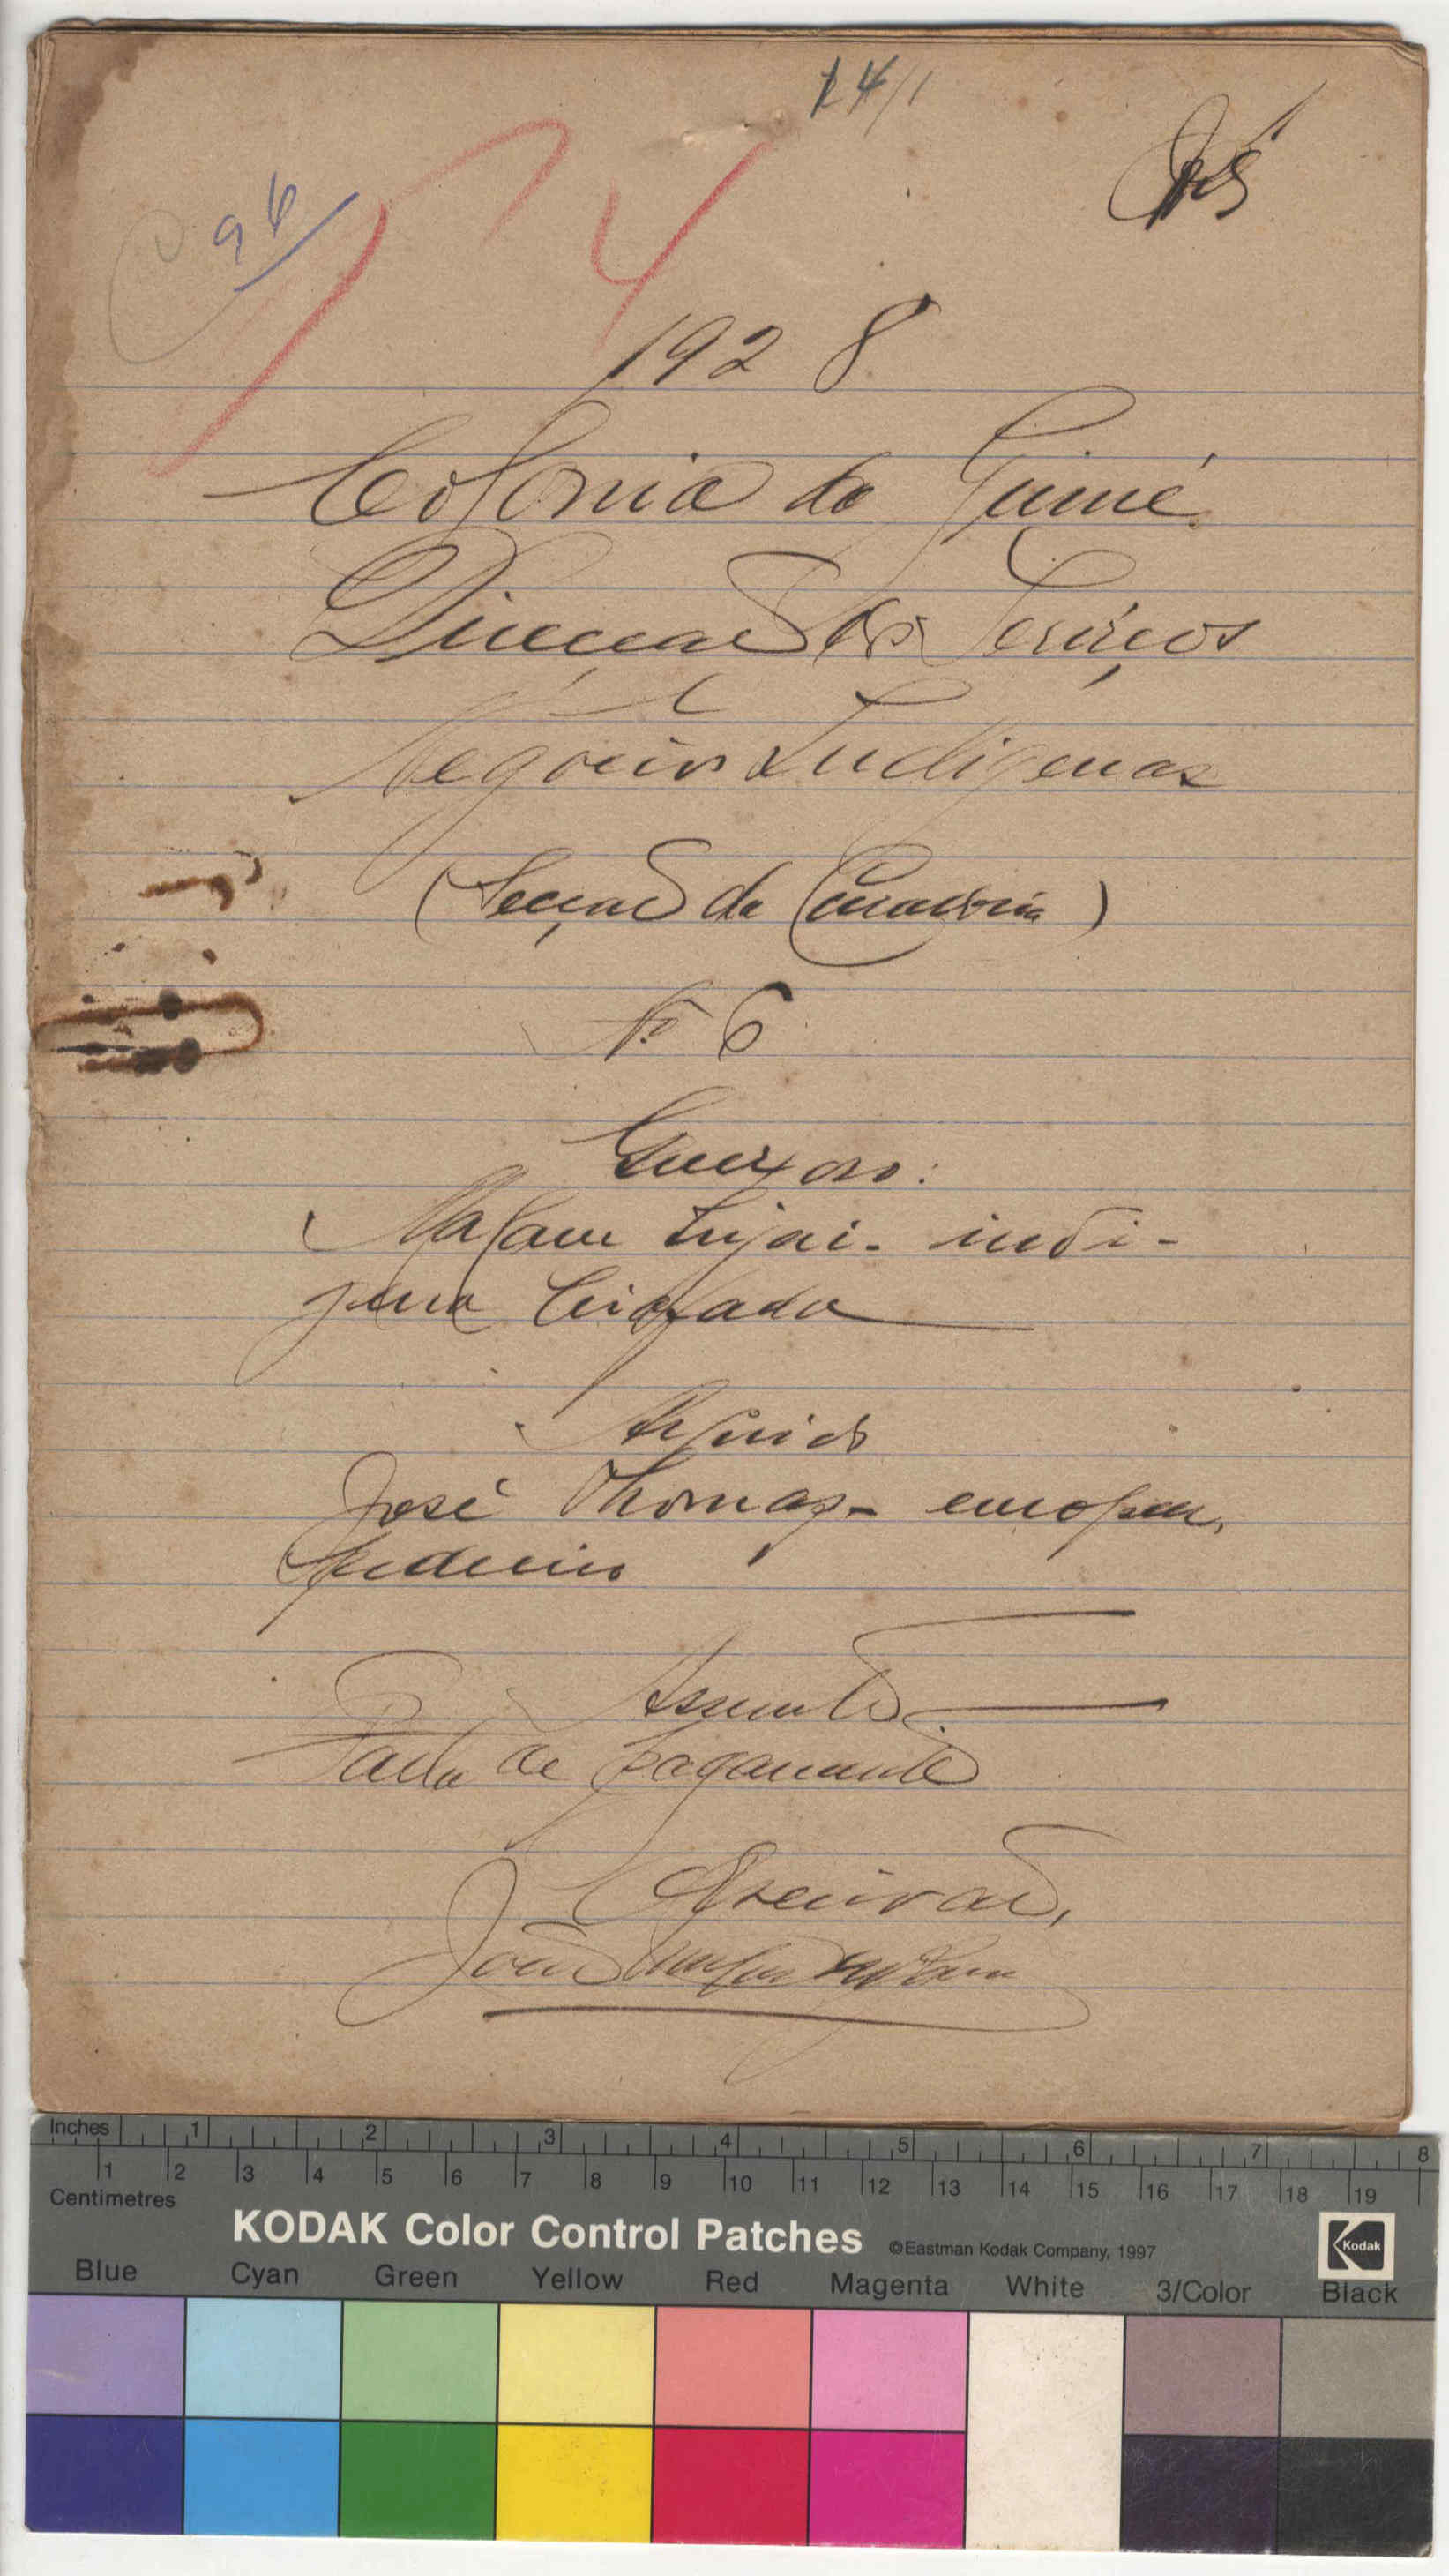 14/1
96
14
1928
Colonia da Guiné
Direcçaõ dos Serviços
e
Negocios Indigenas
(Secçaõ da Curadoria)
Nº 6
Queixoso:
Malam Injai - indi-
gena biafada
Arguido
José Thomaz - europeu,
Assunto
Falta de pagamento
O Escrivaõ,
Joaõ
Inches 1 2 3 4 5 6 7 8
1 2 3 4 5 6 7 8 9 10 11 12 13 14 15 16 17 18 19
Centimetres
KODAK Color Control Patches ©Eastman Kodak Company, 1997 Kodak
Blue Cyan Green Yellow Red Magenta White 3/Color Black